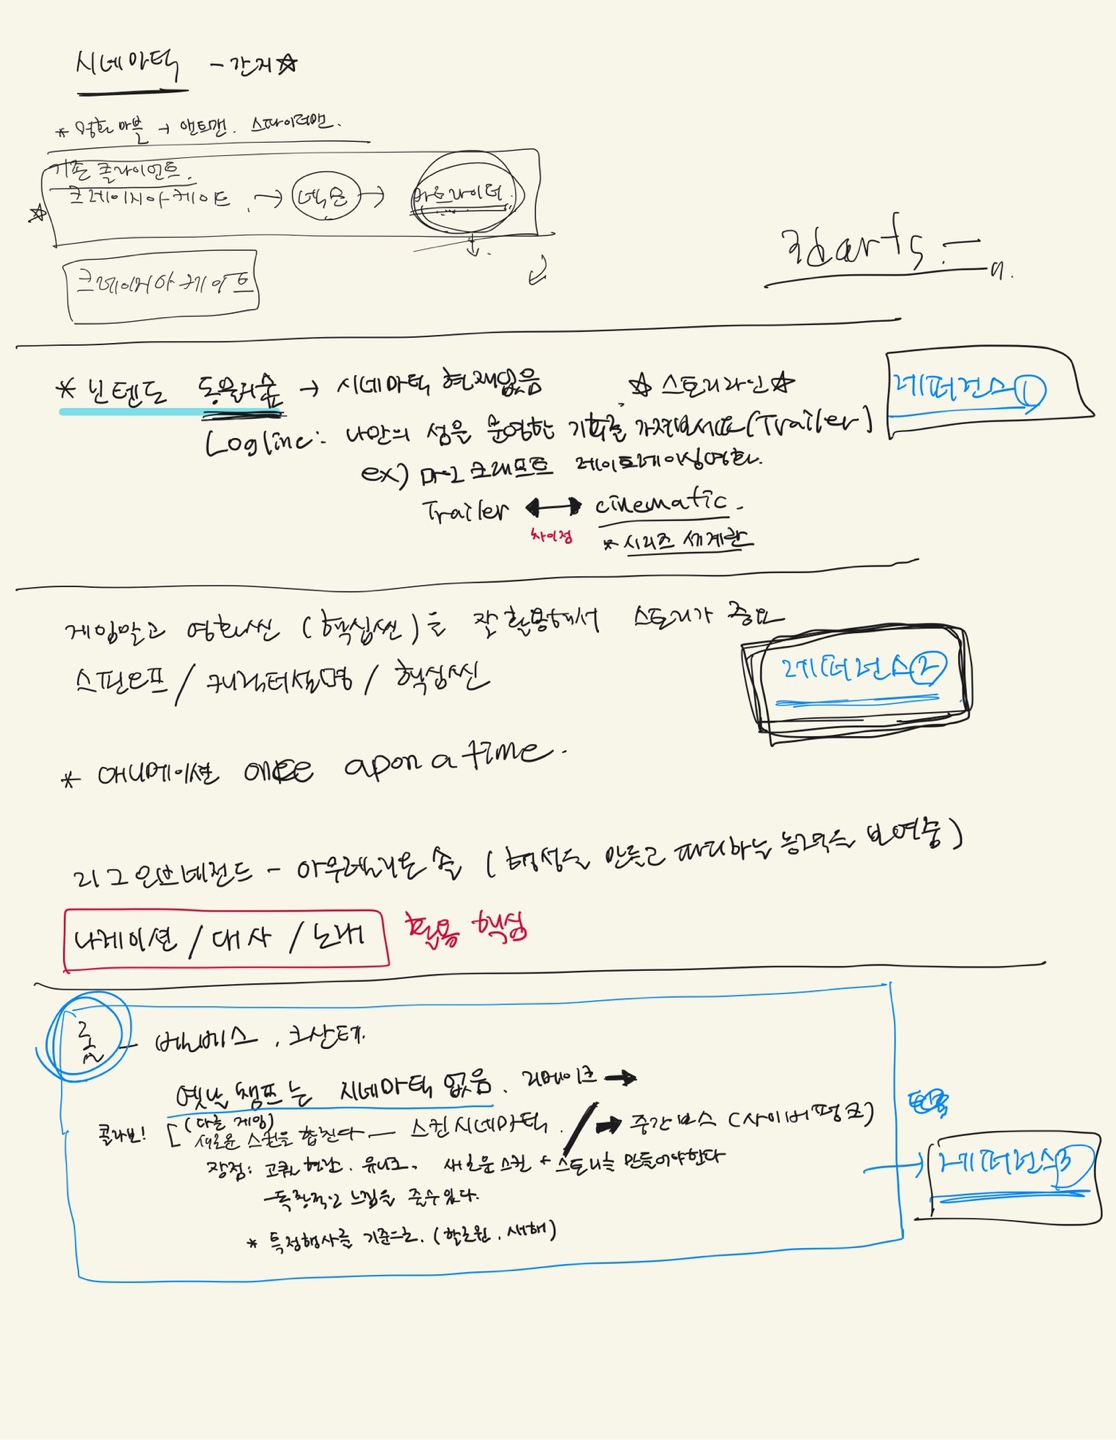 시네마틱 - 간지☆
* 영화 마블 → 앤트맨. 스파이더맨.
기존 클라이언트.
☆ 크레이지아케이드 → 넥슨 → 아웃라이더
크레이지아케이드
3darts
* 닌텐도 동물의숲 → 시네마틱 현재없음 ☆스토리라인☆
레퍼런스①
Logline: 나만의 섬을 운영한 기회를 가져보세요 (Trailer)
ex) 마인크래프트 레이트레이싱영화.
Trailer ↔ cinematic.
차이점
* 시리즈 세계관
게임말고 영화씬 (핵심씬)을 잘 활용해서 스토리가 중요
스핀오프 / 캐릭터설명 / 핵심씬
레퍼런스②
* 애니메이션 once apon a time.
리그오브레전드 - 아우렐리온 솔 (행성을 만들고 파괴하는 능력을 보여줌)
나레이션 / 대사 / 노래 활용 핵심
롤 - 벨베스, 크산테.
옛날 챔프는 시네마틱 없음. 리메이크 →
콜라보! [(다른 게임)
새로운 스킨을 합친다 — 스킨시네마틱. / → 중간보스 (사이버펑크)
장점: 고퀄, 유니크. 새로운 스킨 + 스토리를 만들어야한다
- 독창적인 느낌을 줄수있다.
* 특정행사를 기준으로. (할로윈, 새해)
→ 레퍼런스③